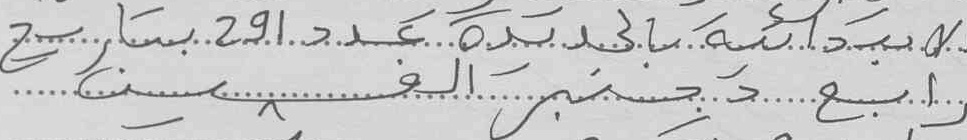 الابتدائية بالجديدة عدد 192 بتاريخ
رابع دجنبر ألفين